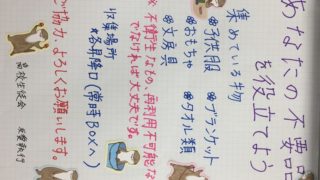 あなたの不要品
を役立てよう
集めている物
❁子供服 ❁ブランケット
❁おもちゃ ❁タオル類
❁文房具
※不衛生なもの、再利用不可能な
でなければ大丈夫です。
収集場所
❁各昇降口(常時BOXへ)
ご協力よろしくお願いします。
高校生徒会 執行